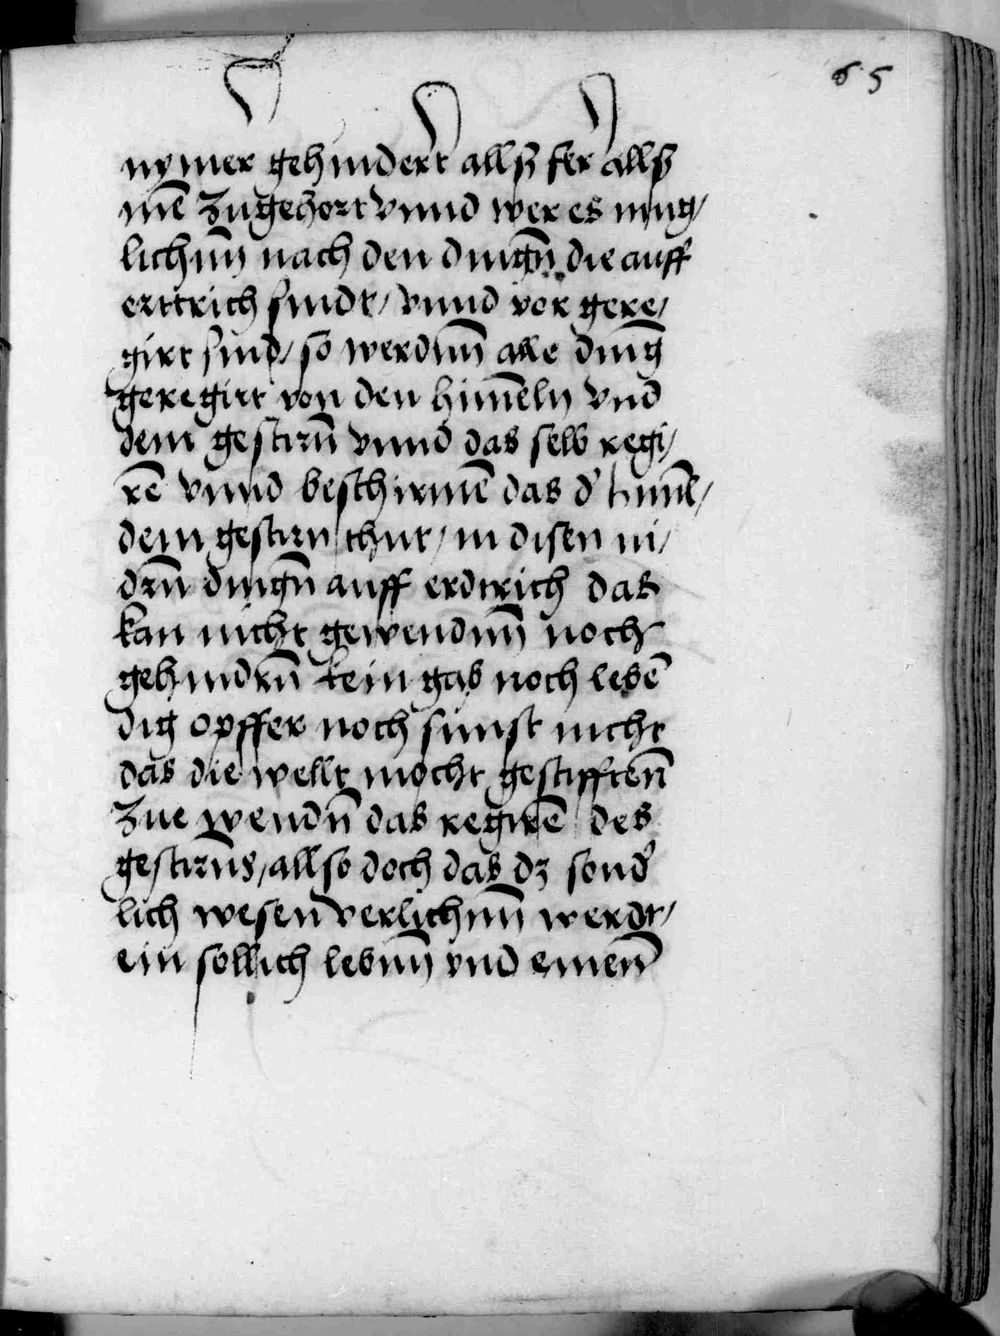 65
nymer gehindert allß fer allß
mē zugehort vnnd wer es mug/
lichnn̄ nach den dingn̄ die auff
erttrich sindt / vnnd vor gere/
girt sind / so werdnn̄ alle ding
geregirt von den himēln vnd
dem gestirn̄ vnnd das selb regi/
rē vnnd beschirmē das d' himl̄/
dem gestirn thut / in disen ni/
drn̄ dingn̄ auff erdtrich das
kan nicht gewendnn̄ noch
gehindrn̄ kein gab noch lebē
dig opffer noch sunst nicht
das die wellt mocht gestifftenn̄
zue wendn̄ das regirē des
gestirns / allso doch das dz sond'
lich wesen verlichnn̄ werdt /
ein sollich lebnn̄ vnd einen̄